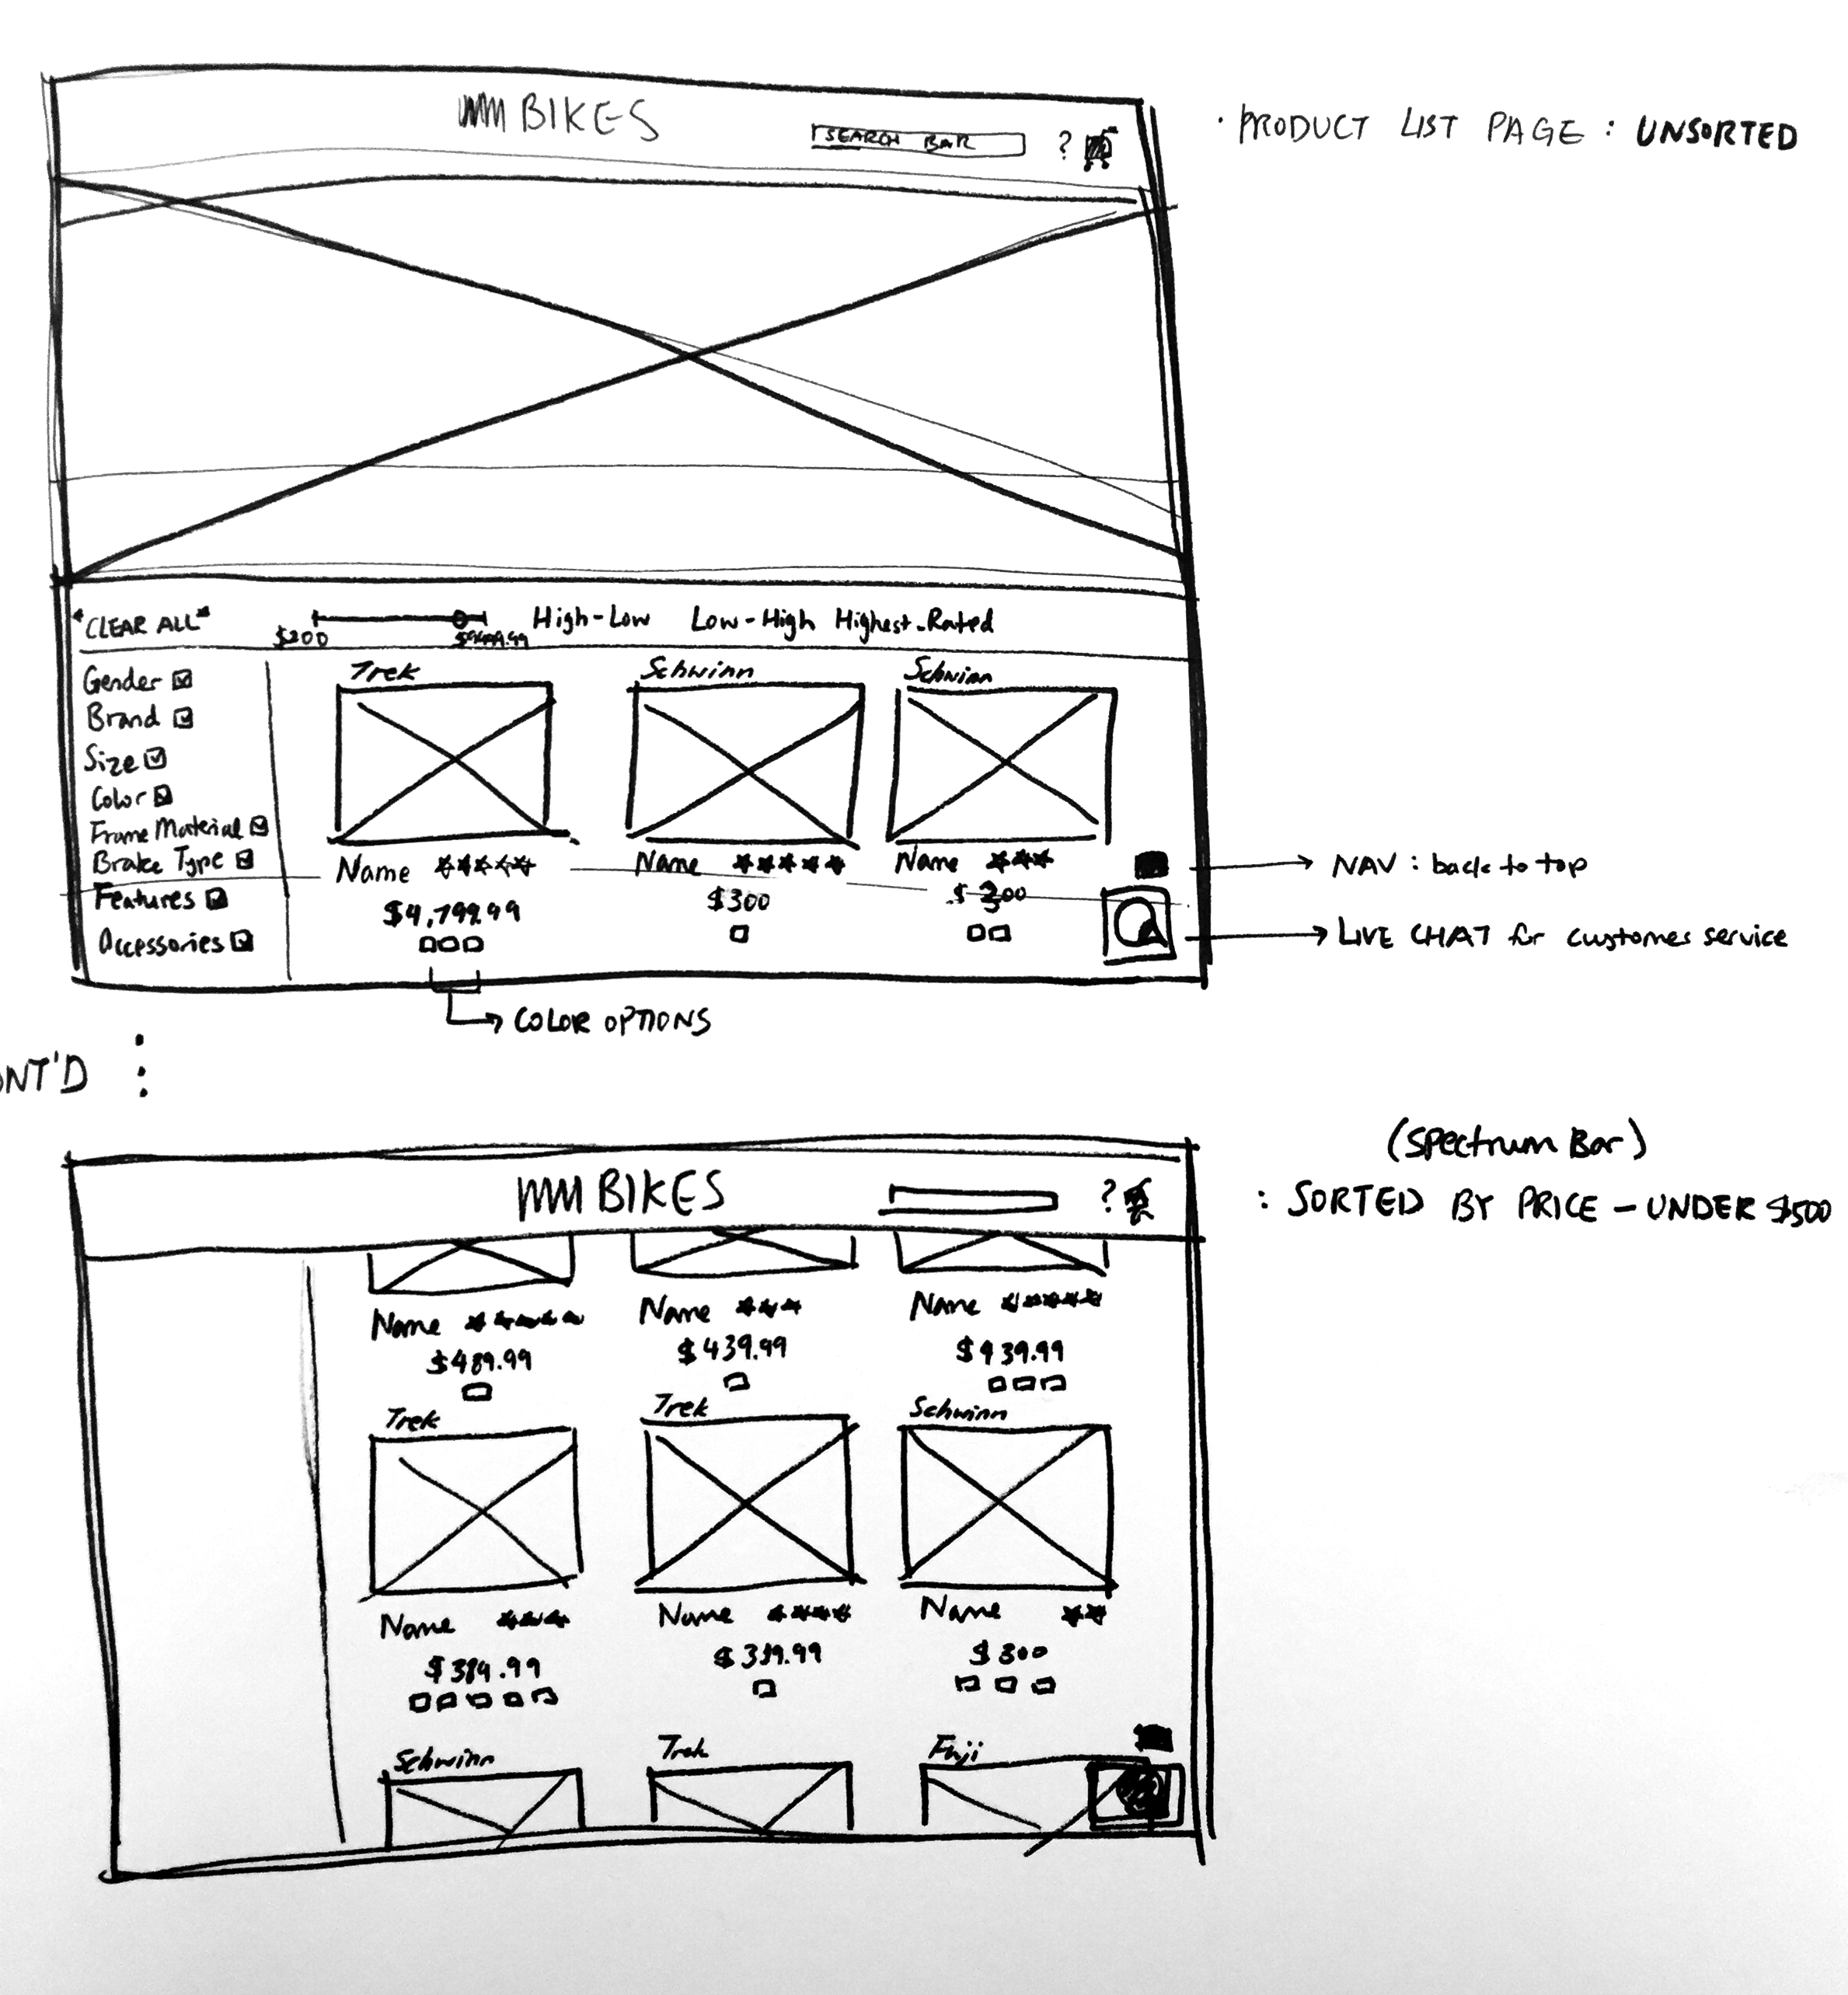 MM BIKES
SEARCH BAR ?
· PRODUCT LIST PAGE : UNSORTED
"CLEAR ALL" $200 High-Low Low-High Highest-Rated
Gender
Brand
Size
Color
Frame Material
Brake Type
Features
Accessories
Trek Schwinn Schwinn
Name ***** Name ***** Name ***
$4,799.99 $300 $300
NAV : back to top
LIVE CHAT for customer service
COLOR OPTIONS
ONT'D :
MM BIKES ?
(Spectrum Bar)
: SORTED BY PRICE – UNDER $500
Name ***** Name *** Name *****
$489.99 $439.99 $439.99
Trek Trek Schwinn
Name *** Name **** Name **
$389.99 $339.99 $300
Schwinn Trek Fuji